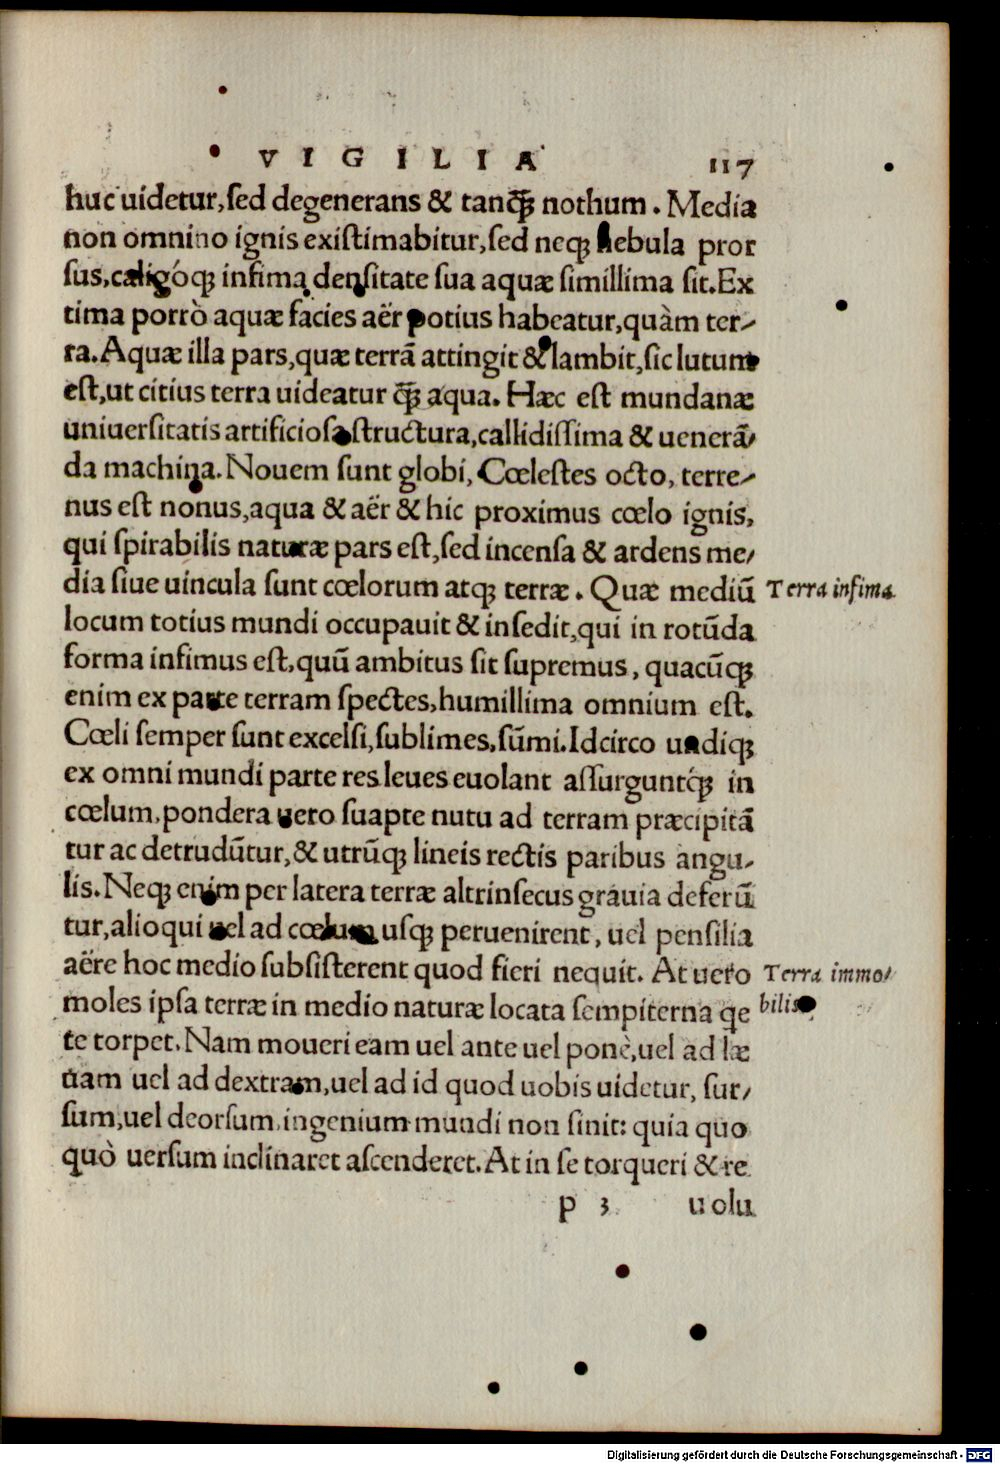 VIGILIA 117
huc uidetur, sed degenerans & tanꝗ̃ nothum. Media
non omnino ignis existimabitur, sed neqꝫ nebula pror
sus, caligóqꝫ infima densitate sua aquæ simillima sit. Ex
tima porrò aquæ facies aër potius habeatur, quàm ter⸗
ra. Aquæ illa pars, quæ terrā attingit & lambit, sic lutum
est, ut citius terra uideatur ꝗ̃ aqua. Hæc est mundanæ
uniuersitatis artificiosa structura, callidissima & uenerā⸗
da machina. Nouem sunt globi, Cœlestes octo, terre⸗
nus est nonus, aqua & aër & hic proximus cœlo ignis,
qui spirabilis naturæ pars est, sed incensa & ardens me⸗
dia siue uincula sunt cœlorum atqꝫ terræ. Quæ mediū
Terra infima.
locum totius mundi occupauit & insedit, qui in rotūda
forma infimus est, quū ambitus sit supremus, quacūqꝫ
enim ex parte terram spectes, humillima omnium est.
Cœli semper sunt excelsi, sublimes, sūmi. Idcirco undiqꝫ
ex omni mundi parte res leues euolant assurguntq́ꝫ in
cœlum, pondera uero suapte nutu ad terram præcipitā
tur ac detrudūtur, & utrūqꝫ lineis rectis paribus angu⸗
lis. Neqꝫ enim per latera terræ altrinsecus grauia deferū
tur, alioqui uel ad cœlum usqꝫ peruenirent, uel pensilia
aëre hoc medio subsisterent quod fieri nequit. At uero
Terra immo⸗
moles ipsa terræ in medio naturæ locata sempiterna qe
bilis
te torpet. Nam moueri eam uel ante uel ponè, uel ad læ
uam uel ad dextram, uel ad id quod uobis uidetur, sur⸗
sum, uel deorsum, ingenium mundi non sinit: quia quo
quò uersum inclinaret ascenderet. At in se torqueri & re
p 3 uolu
Digitalisierung gefördert durch die Deutsche Forschungsgemeinschaft - DFG